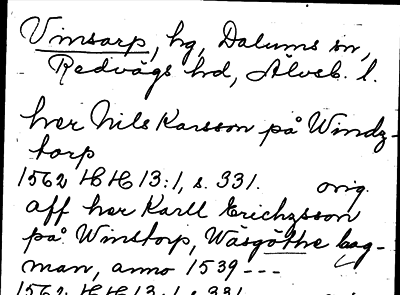 Vinsarp, hg, Dalums sn,
Redvägs hd, Älvsb. l.
her Nils Karsson på Windz-
torp
1562 HH 13:1, s. 331. orig.
aff her Karll Erichzsson
på Winstorp, Wäsgöthe lag-
man, anno 1539 ---
1562 HH 13:1, s. 331